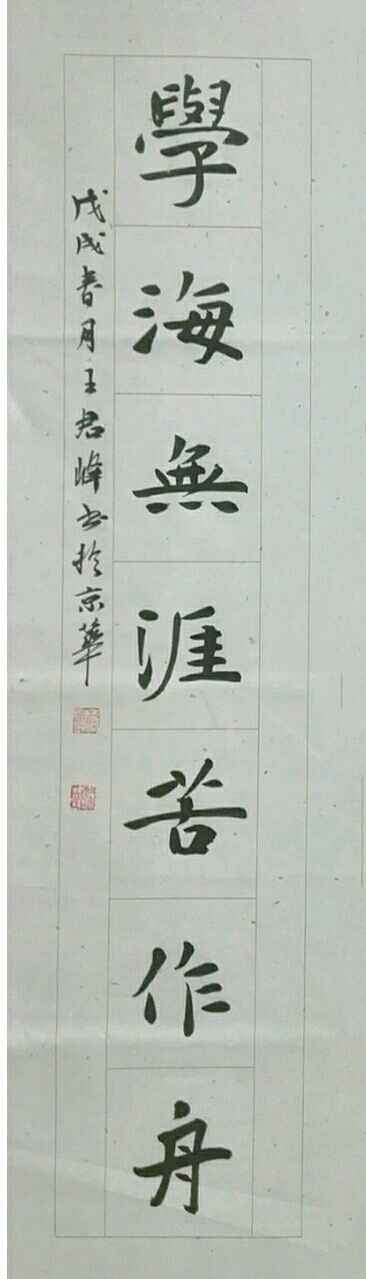 學海無涯苦作舟
戊戌春月王君峰书於京華